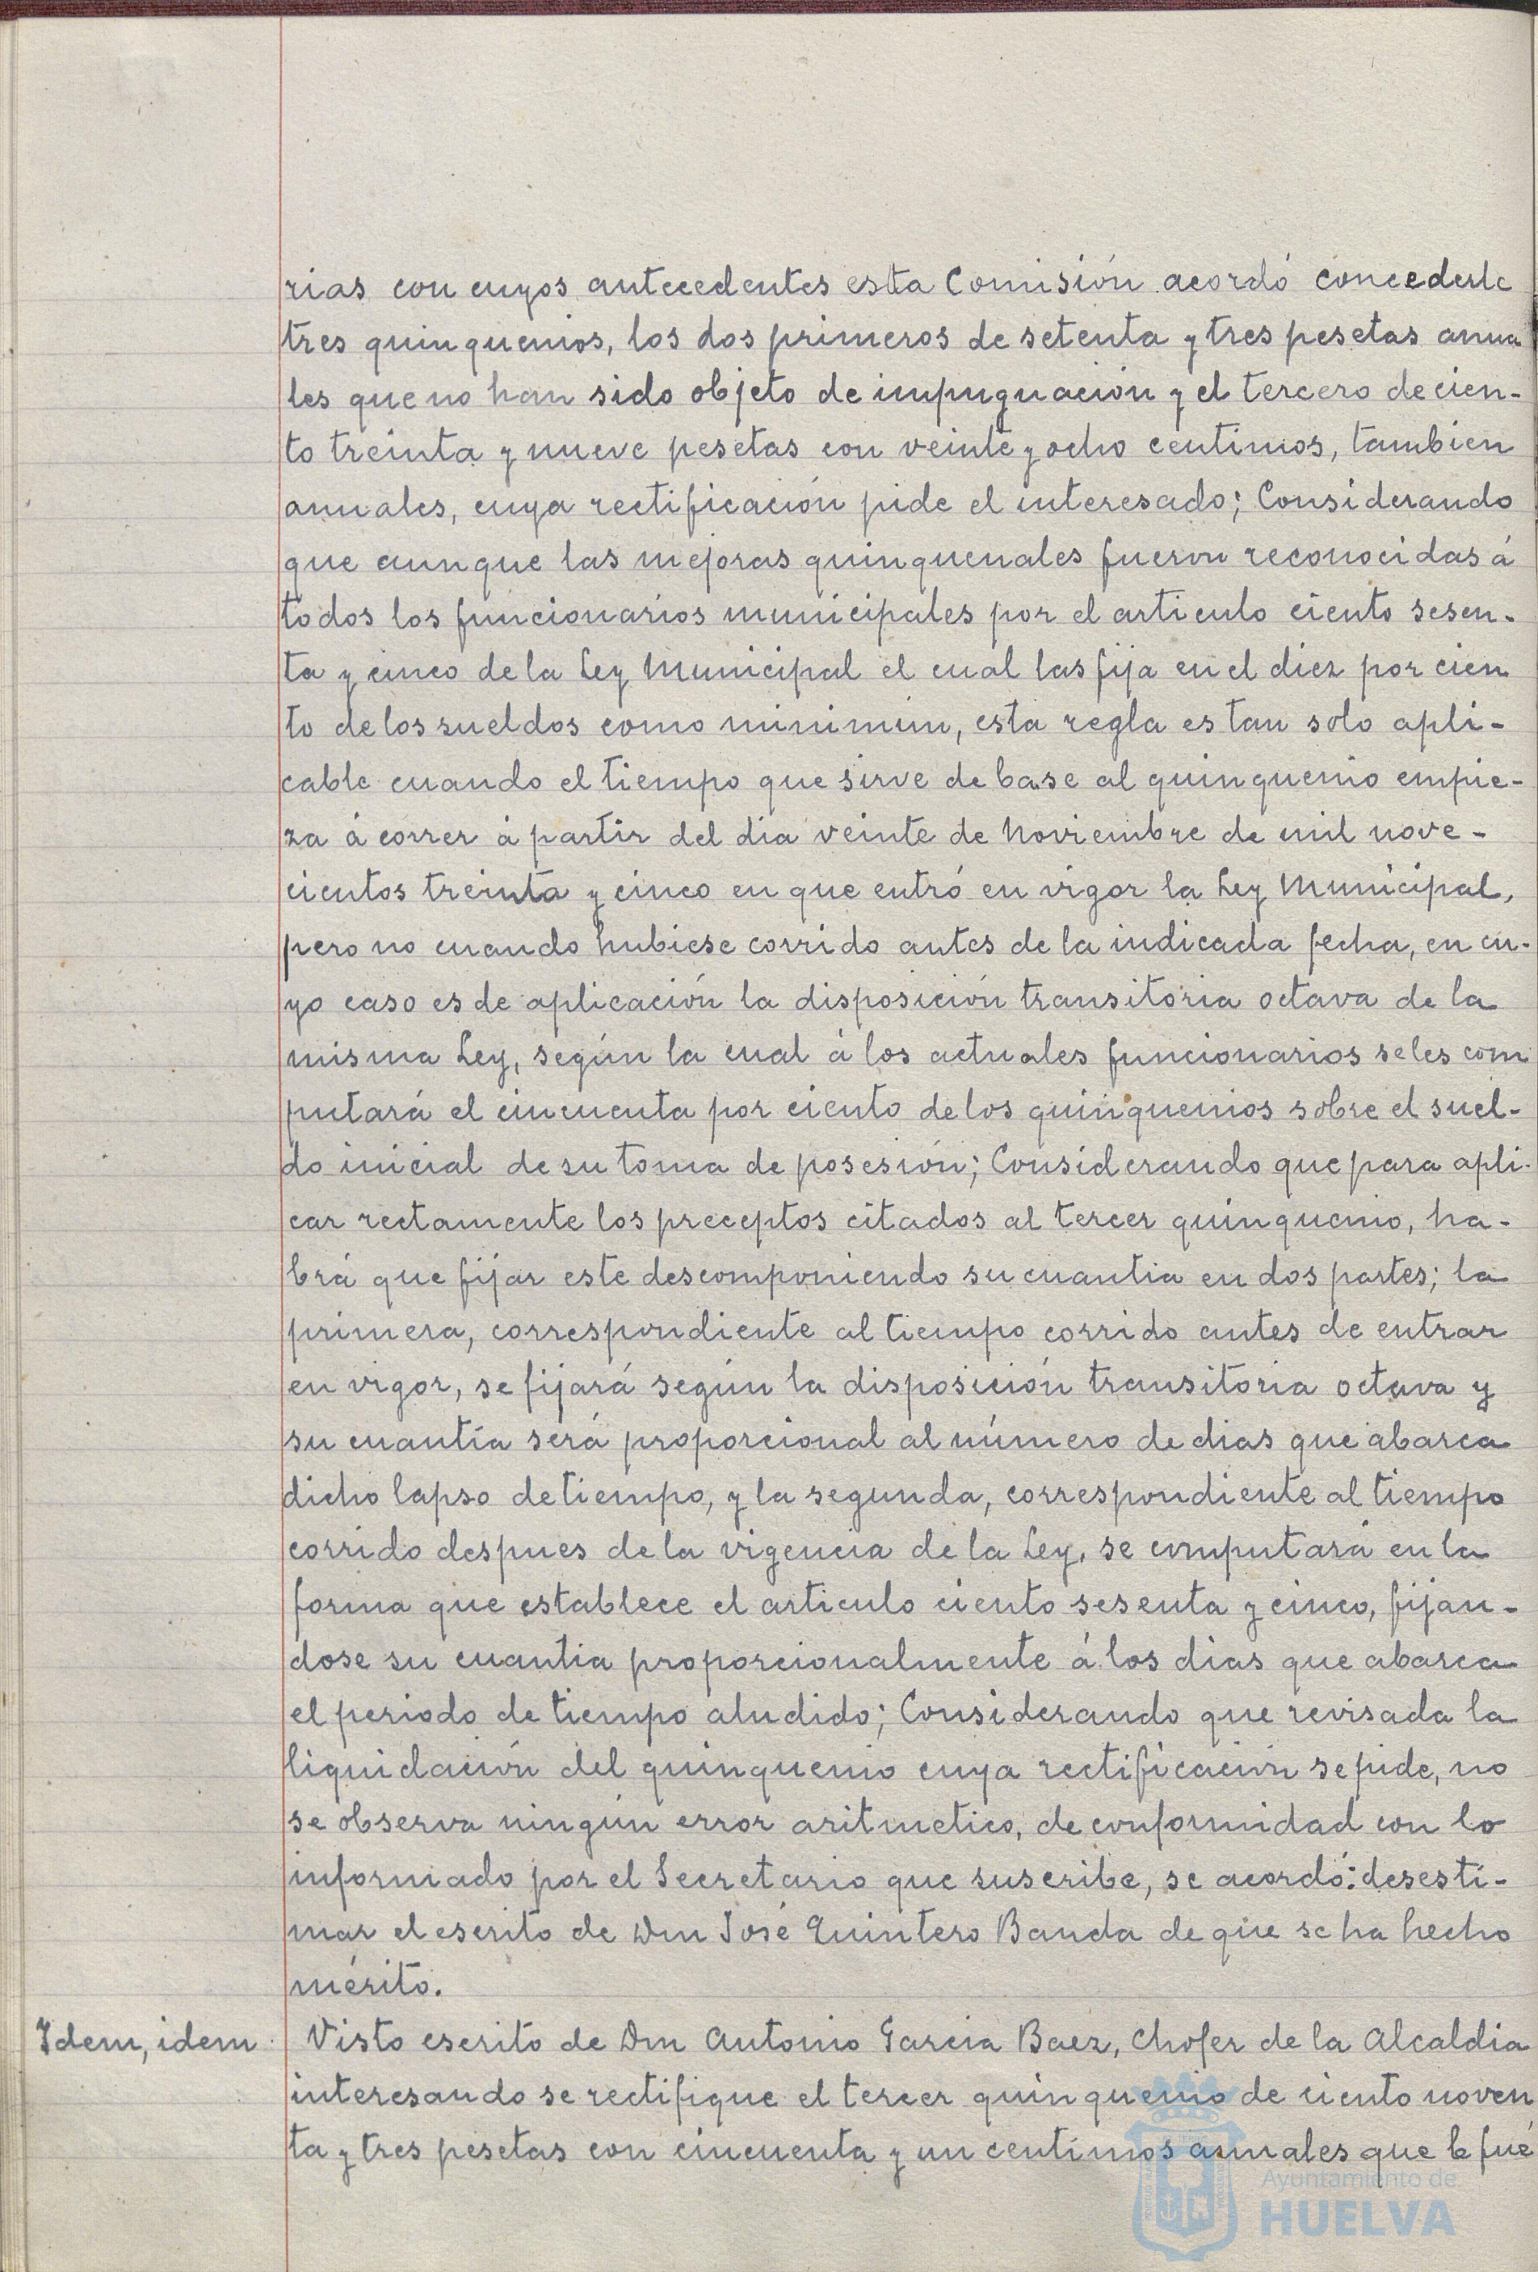 rias con cuyos antecedentes esta Comisión acordó concederle
tres quinquenios, los dos primeros de setenta y tres pesetas anua
les que no han sido objeto de impugnación y el tercero de cien-
to treinta y nueve pesetas con veinte y ocho centimos, tambien
anuales, cuya rectificación pide el interesado; Considerando
que aunque las mejoras quinquenales fueron reconocidas á
todos los funcionarios municipales por el articulo ciento sesen-
ta y cinco de la Ley Municipal el cual las fija en el diez por cien
to de los sueldos como minimun, esta regla es tan solo apli-
cable cuando el tiempo que sirve de base al quinquenio empie-
za á correr á partir del dia veinte de Noviembre de mil nove-
cientos treinta y cinco en que entró en vigor la Ley Municipal,
pero no cuando hubiese corrido antes de la indicada fecha, en cu-
yo caso es de aplicación la disposición transitoria octava de la
misma Ley, según la cual á los actuales funcionarios se les com
putará el cincuenta por ciento de los quinquenios sobre el suel-
do inicial de su toma de posesión; Considerando que para apli-
car rectamente los preceptos citados al tercer quinquenio, ha-
brá que fijar este descomponiendo su cuantia en dos partes; la
primera, correspondiente al tiempo corrido antes de entrar
en vigor, se fijará según la disposición transitoria octava y
su cuantía será proporcional al número de dias que abarca
dicho lapso de tiempo, y la segunda, correspondiente al tiempo
corrido despues de la vigencia de la Ley, se computará en la
forma que establece el articulo ciento sesenta y cinco, fijan-
dose su cuantia proporcionalmente á los dias que abarca
el periodo de tiempo aludido; Considerando que revisada la
liquidación del quinquenio cuya rectificación se pide, no
se observa ningún error aritmetico, de conformidad con lo
informado por el Secretario que suscribe, se acordó: desesti-
mar el escrito de Don José Quintero Banda de que se ha hecho
mérito.
Idem, idem Visto escrito de Don Antonio Garcia Baez, Chofer de la Alcaldia
interesando se rectifique el tercer quinquenio de ciento noven
ta y tres pesetas con cincuenta y un centimos anuales que le fué
Ayuntamiento de
HUELVA